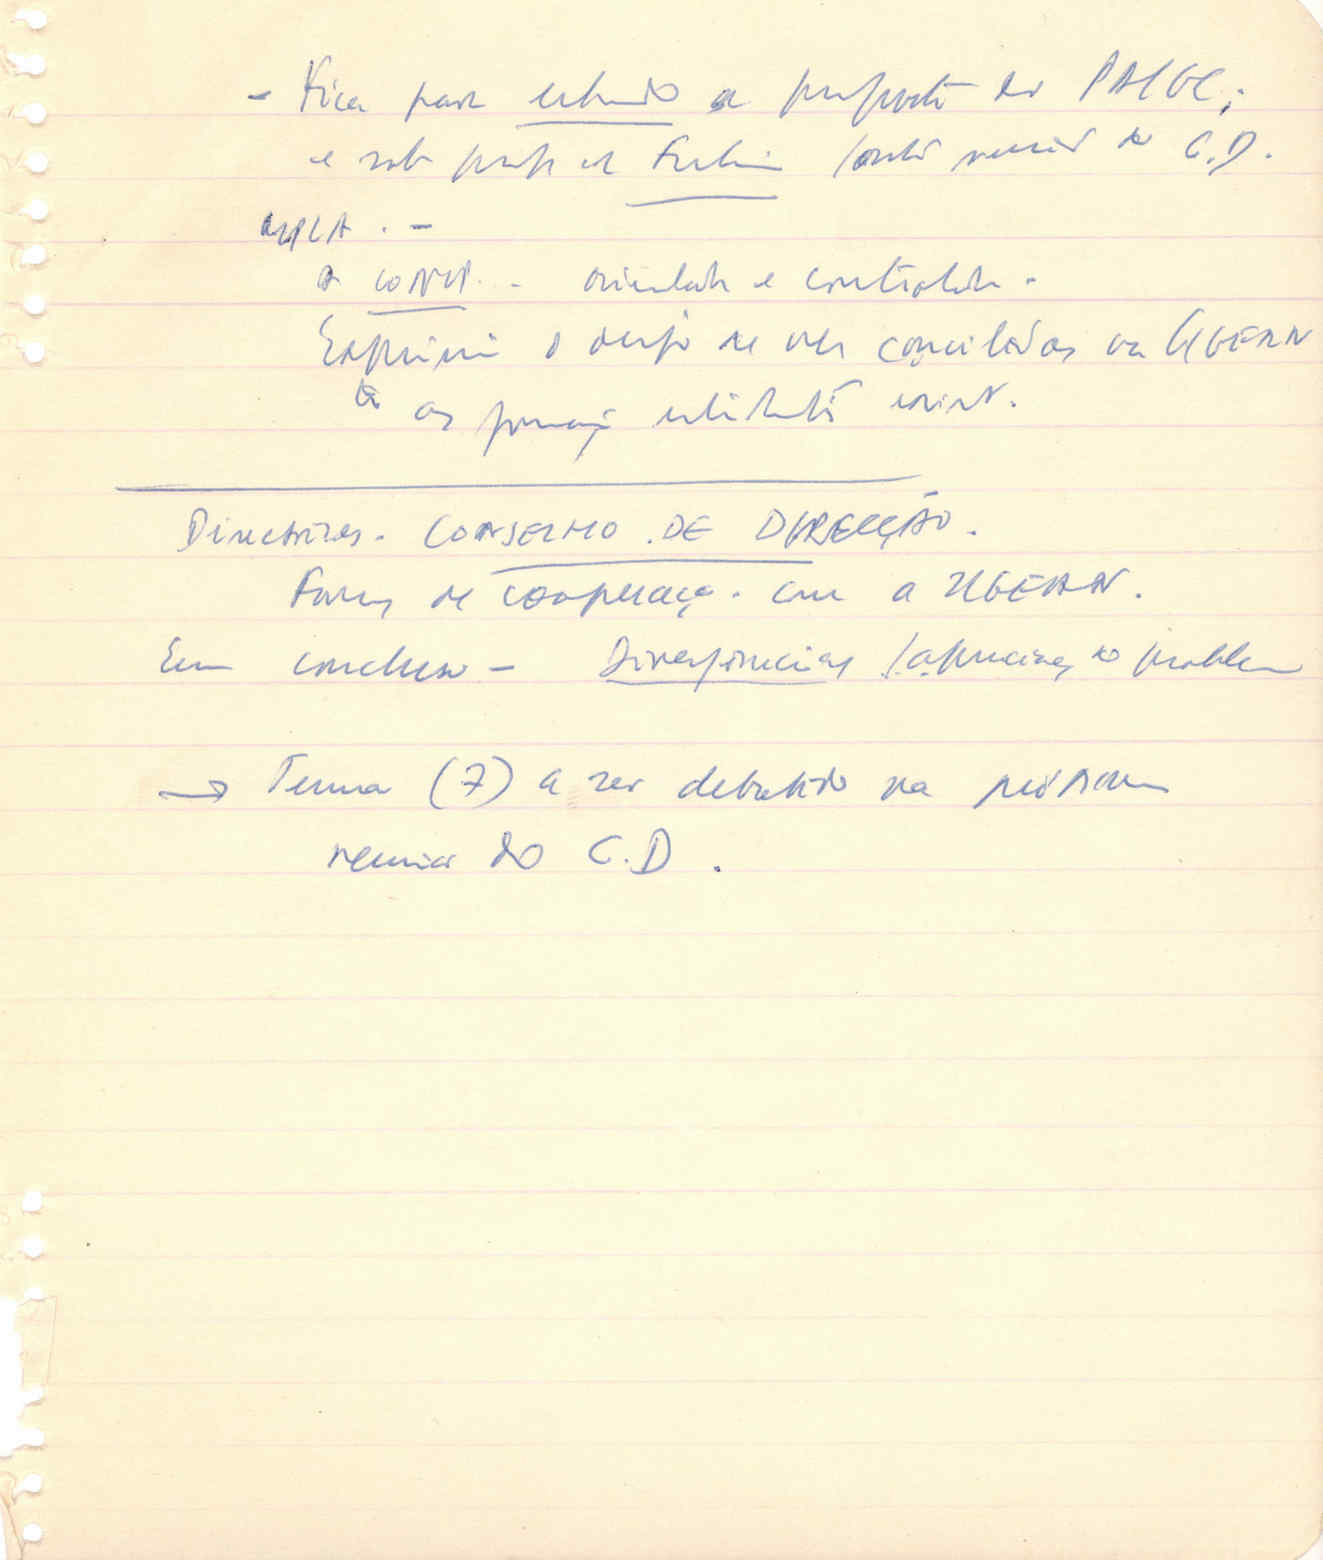 - Fica para estudo a proposta do PAIGC;
e sob prop. de
C.D.
MPLA . -
A CONCP. - orientada e controlada.
Exprimir o desejo de ver conciliadas na UGEAN
as estudantis exist.
Directrizes. CONSELHO DE DIRECÇÃO.
Formas de cooperação. com a UGEAN.
Em conclusão - Divergências /apreciação do problema
→ Tema (7) a ser debatido na próxima
reunião do C.D.